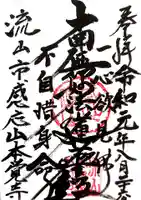 奉拝 令和元年八月二十六日
一心欲見佛
南無妙法蓮華経
不自惜身命
流山市感応山本覚寺